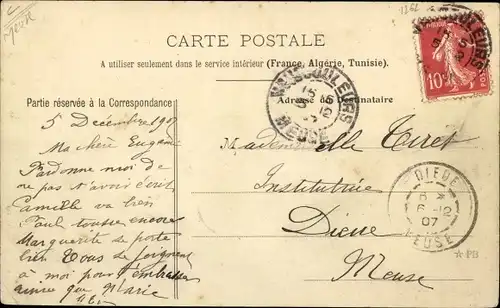 1362
Meuse
CARTE POSTALE
A utiliser seulement dans le service intérieur (France, Algérie, Tunisie).
Partie réservée à la Correspondance
Adresse du Destinataire
VAUCOULEURS
MEUSE
10
5 Décembre 1907
Ma chère Eugénie
Pardonne moi de
ne pas t'avoir écrit
Camille va bien
Paul tousse encore
Marguerite se porte
bien Tous se joignent
à moi pour t'embrasser
ainsi que Marie
Mademoiselle Terret
Institutrice
Dieue
Meuse
DIEUE
6 -12
07
MEUSE
PB